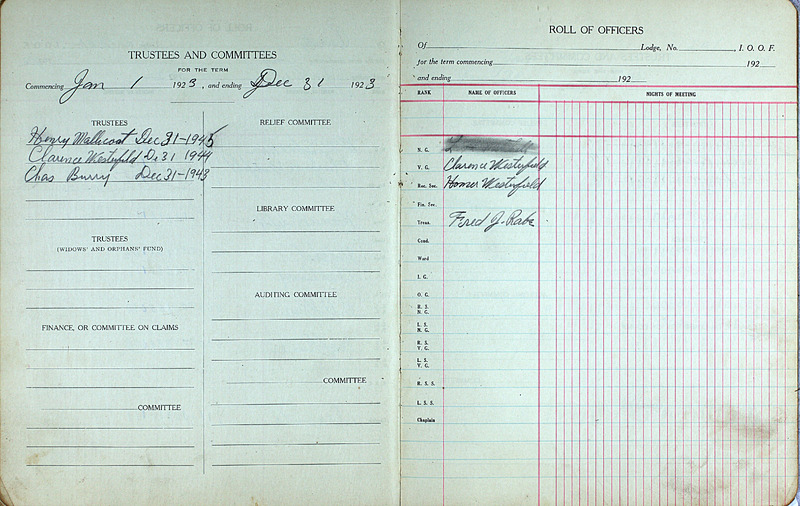 TRUSTEES AND COMMITTEES
FOR THE TERM
Commencing Jan 1 1923, and ending Dec 31 1923
TRUSTEES
Henry Mallicoat Dec 31-1945
Clarence Westerfield D. 31 1944
Chas Burry Dec 31-1943
TRUSTEES
(WIDOWS' AND ORPHANS' FUND)
FINANCE, OR COMMITTEE ON CLAIMS
COMMITTEE
RELIEF COMMITTEE
LIBRARY COMMITTEE
AUDITING COMMITTEE
COMMITTEE
ROLL OF OFFICERS
Of Lodge, No. , I. O. O. F.
for the term commencing 192
and ending 192
RANK NAME OF OFFICERS NIGHTS OF MEETING
N. G.
V. G. Clarence Westerfield
Rec. Sec. Homer Westerfield
Fin. Sec.
Treas. Fred J. Rabe
Cond.
Ward
I. G.
O. G.
R. S. N. G.
L. S. N. G.
R. S. V. G.
L. S. V. G.
R. S. S.
L. S. S.
Chaplain